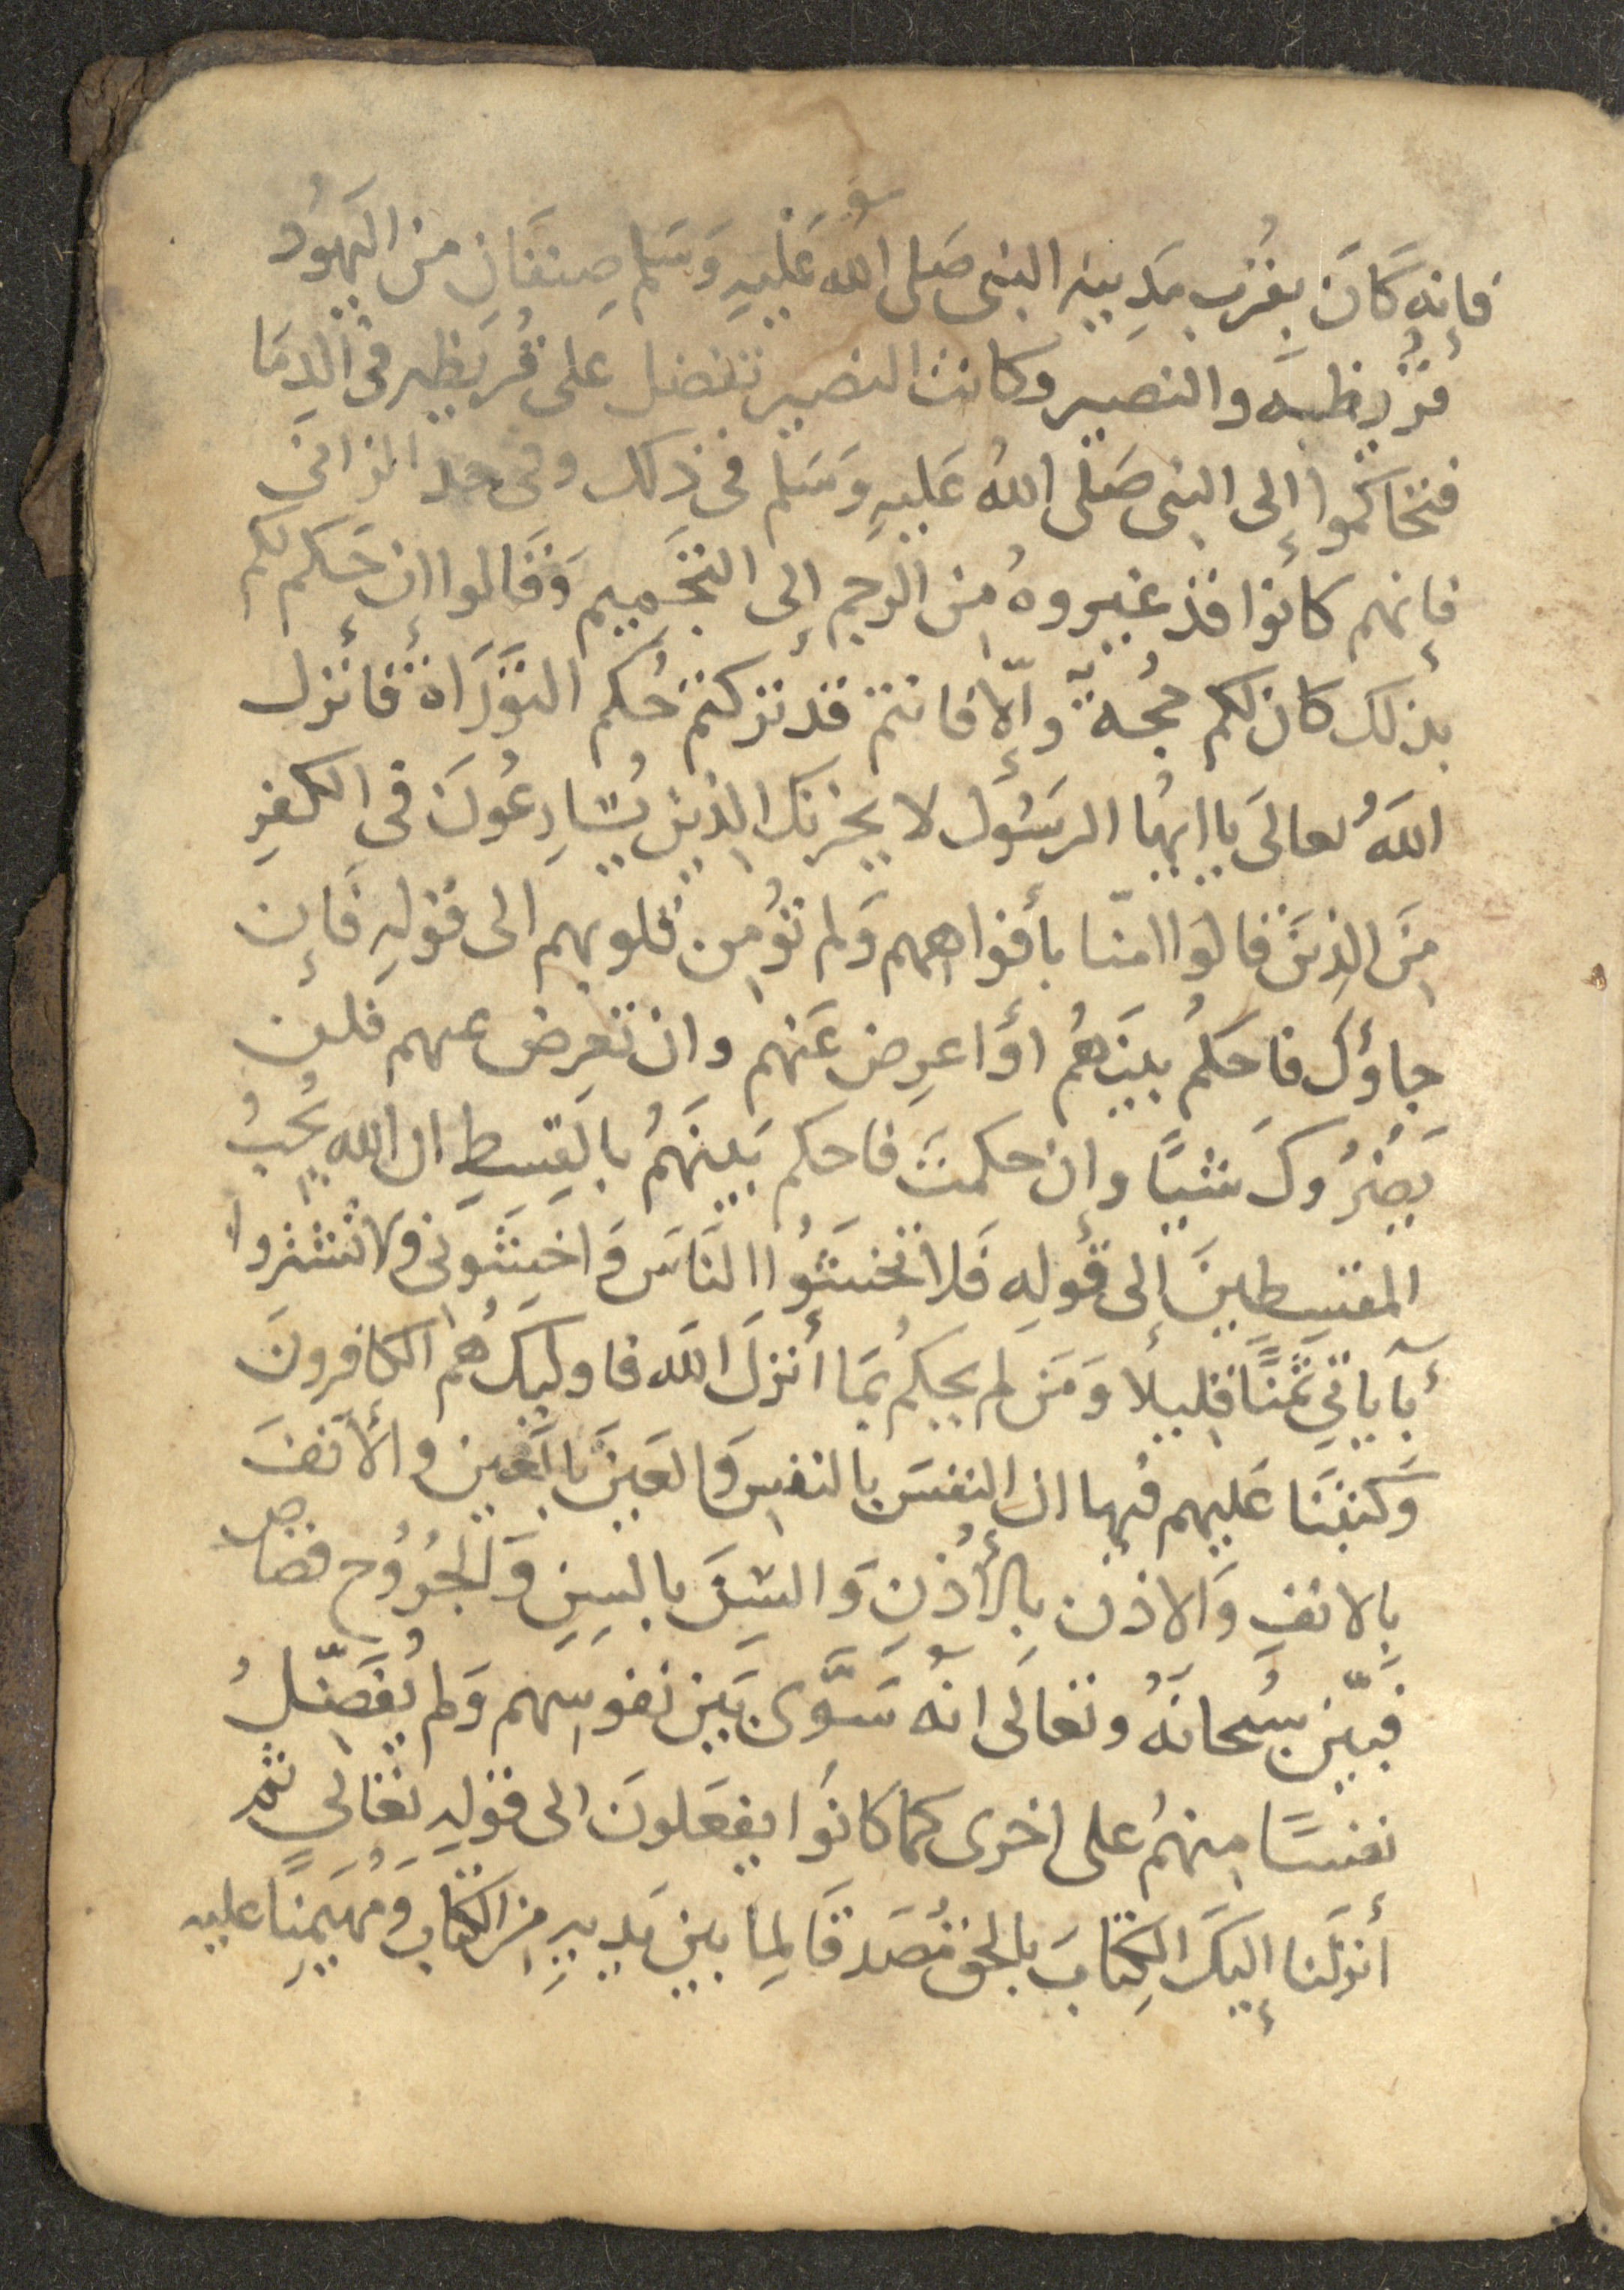 فإنه كَانَ بقُرب مَدِينه النبى صَلى الله عَلَيهِ وَسَلم صِنفَانِ من اليَهُود
قُريظه والنضير وكانت النضير تفضل عَلى قُريَظه فى الدِمَا
فتحاكموا إلى النبى صَلى اللهُ عَليهِ وَسَلم فى ذلك وفى حد الزانى
فإنهم كانوا قد غيروهُ مِن الرجم إلى التحَميم وَقَالوا إن حَكم لكم
بذلك كان لكم حُجةً وإلّا فأنتم قد تركتم حُكم التورَاة فأنزل
اللهُ تعالَى يا ايهُا الرسُول لا يحزنك الذين يُسَارِعُونَ فى الكفرِ
مِنَ الذِينَ قالوا امنّا بأفواههم وَلم تؤمِن قلوبهم الى قولهِ فَإن
جاؤك فاحكمُ بينَهُم أوَ اعرِض عَنهم وان تعرِض عنهم فلن
يَضُرُوكَ شيئًا وان حكمتَ فاحكم بَينَهُم بالقِسطِ ان الله يُحبُ
المقسِطينَ إلى قولهِ فَلا تخشَوُا النَاسَ وَاخشَونى وَلا تشتروا
بآياتِي ثمَنًا قليلًا وَمَن لم يحكُم بمَا أنزلَ الله فاولئِكَ هُم الكافرونَ
وَكتبنَا عَليهم فيها ان النفسَ بالنفسِ وَالعَينَ بالعَين والأنفَ
بِالانفِ وَالاذن بِالأُذُنِ وَالسِنَ بالسِنِ وَالجُرُوُح قصَاص
فبَيّن سُبحانَهُ وتعَالَى انهُ سَوَّى بَين نفوسِهم وَلم يُفَضّلُ
نفسًا مِنهُم على اخرى كما كانُوا يفعَلونَ الى قولهِ تعَالى ثم
أنزلنَا إليكَ الكِتابَ بالحق مُصَدقَا لِما بين يَديهِ مِن الكتابِ وَمُهَيمِنًا عليه